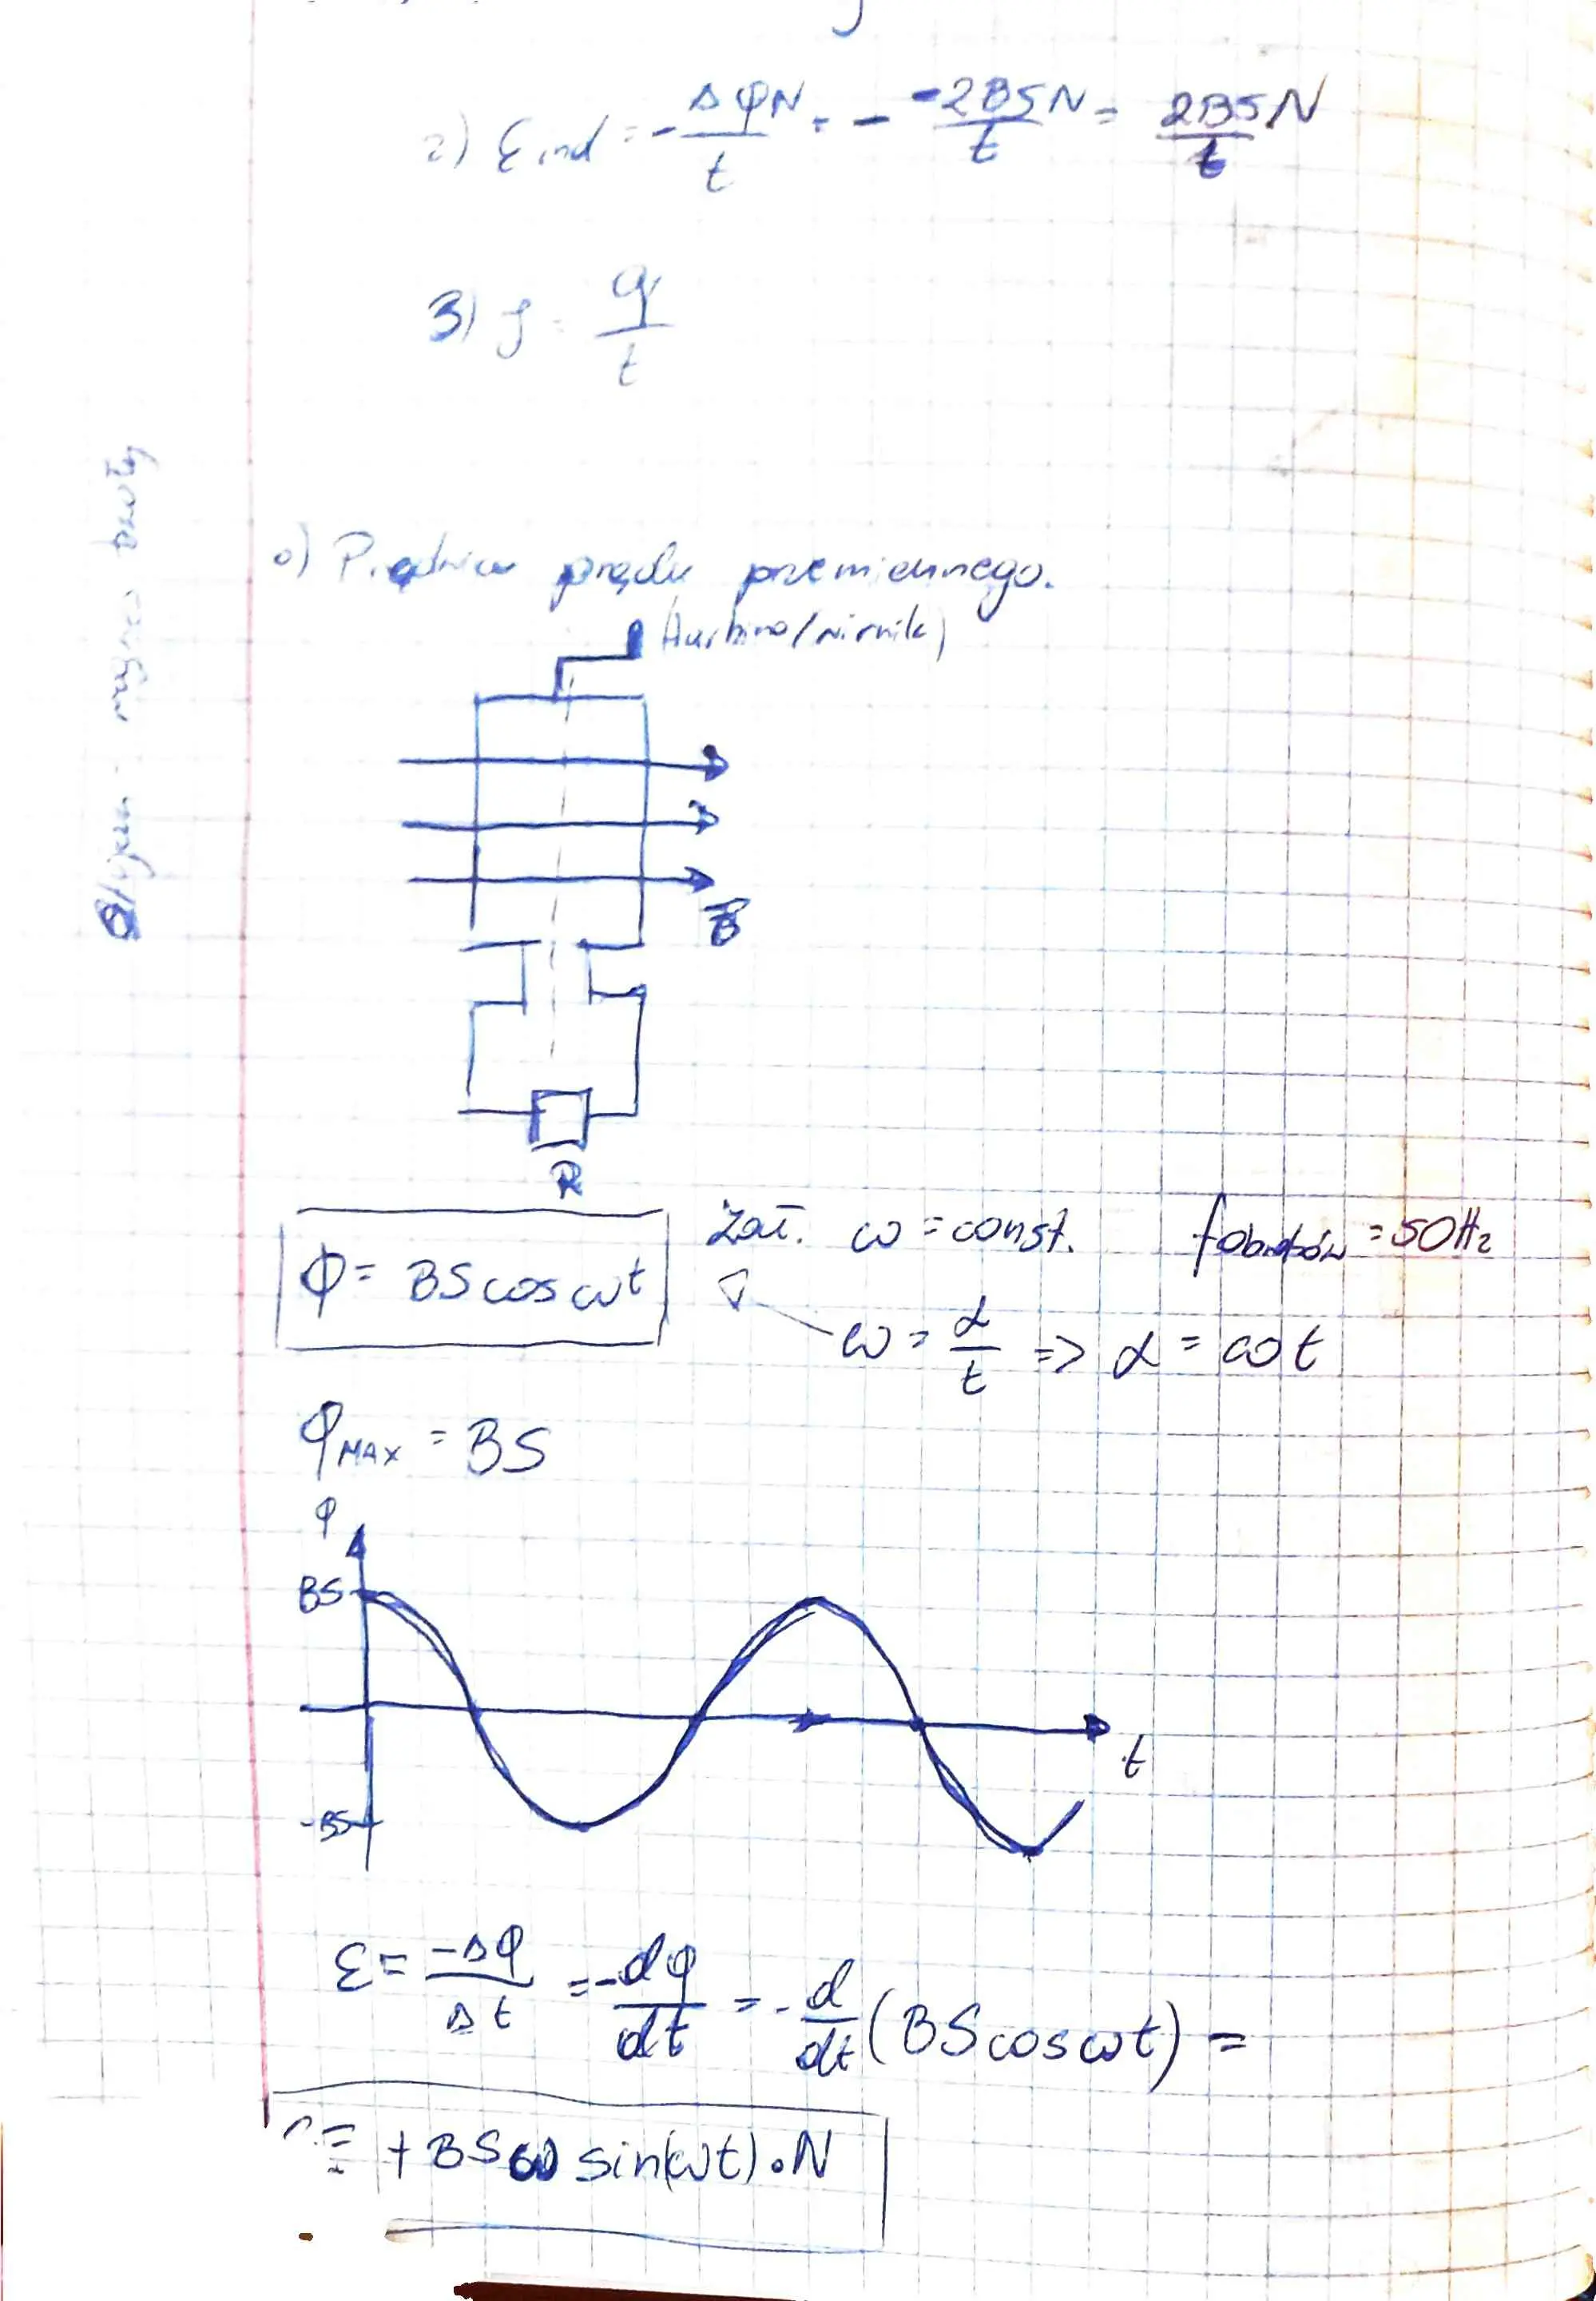 2) Ɛind = - ΔφN/t = - -2BSN/t = 2BSN/t
3) J = q/t
o) Prądnica prądu przemiennego.
(turbina/wirnik)
B
R
Φ = BS cos ωt
Zał. ω = const. fobrotów = 50Hz
ω = α/t => α = ωt
φMAX = BS
φ
BS
t
-BS
Ɛ = -Δφ/Δt = -dφ/dt = -d/dt (BS cos ωt) =
= +BSω sin(ωt)·N